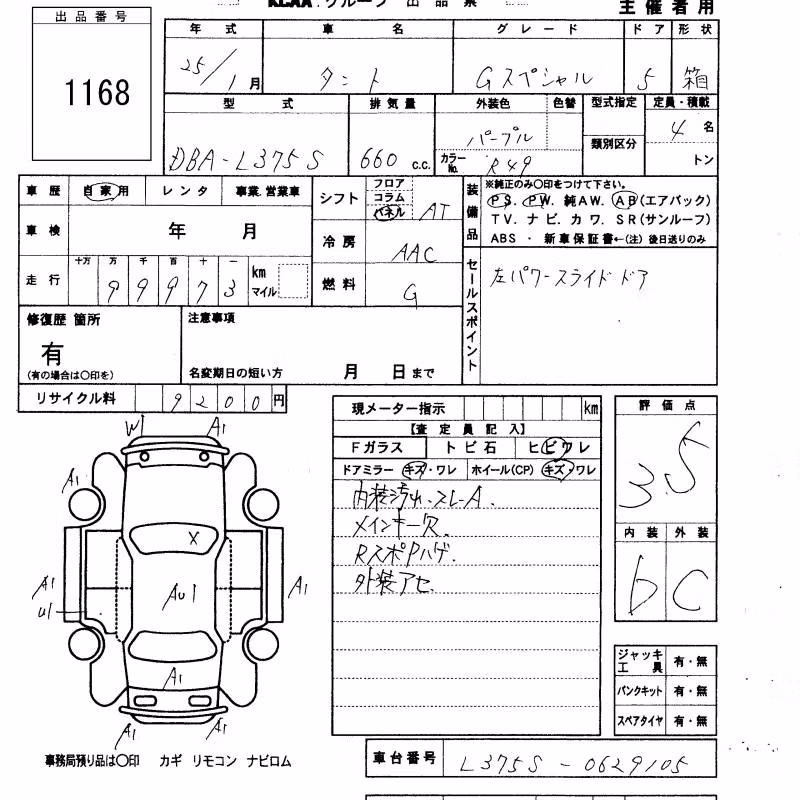 KCAA.グループ 出品票
主催者用
出品番号
1168
年式 車名 グレード ドア 形状
25/1月 タント Gスペシャル 5 箱
型式 排気量 外装色 色替 型式指定 定員・積載
DBA-L375S 660 c.c. パープル カラーNo. R49 類別区分 4名 トン
車歴 自家用 レンタ 事業.営業車
車検 年 月
走行 十万 万 千 百 十 一 km マイル
99973
シフト フロア コラム パネル AT
冷房 AAC
燃料 G
装備品
※純正のみ○印をつけて下さい。
PS. PW. 純AW. AB(エアバック)
TV. ナビ. カワ. SR(サンルーフ)
ABS ・ 新車保証書←(注) 後日送りのみ
セールスポイント
左パワースライドドア
修復歴 箇所
有
(有の場合は○印を)
注意事項
名変期日の短い方 月 日まで
リサイクル料 9200円
現メーター指示 km
【査定員記入】
Fガラス トビ石 ヒビワレ
ドアミラー キズ・ワレ ホイール(CP) キズ・ワレ
内装汚れ.スレ-A.
メインキー欠.
RスポPハゲ.
外装アセ.
評価点
3.5
内装 外装
b C
W1 A1
A1
X
A1 AU1 A1
U1
A1
A1 A1
ジャッキ工具 有・無
パンクキット 有・無
スペアタイヤ 有・無
事務局預り品は○印 カギ リモコン ナビロム
車台番号 L375S-0629105